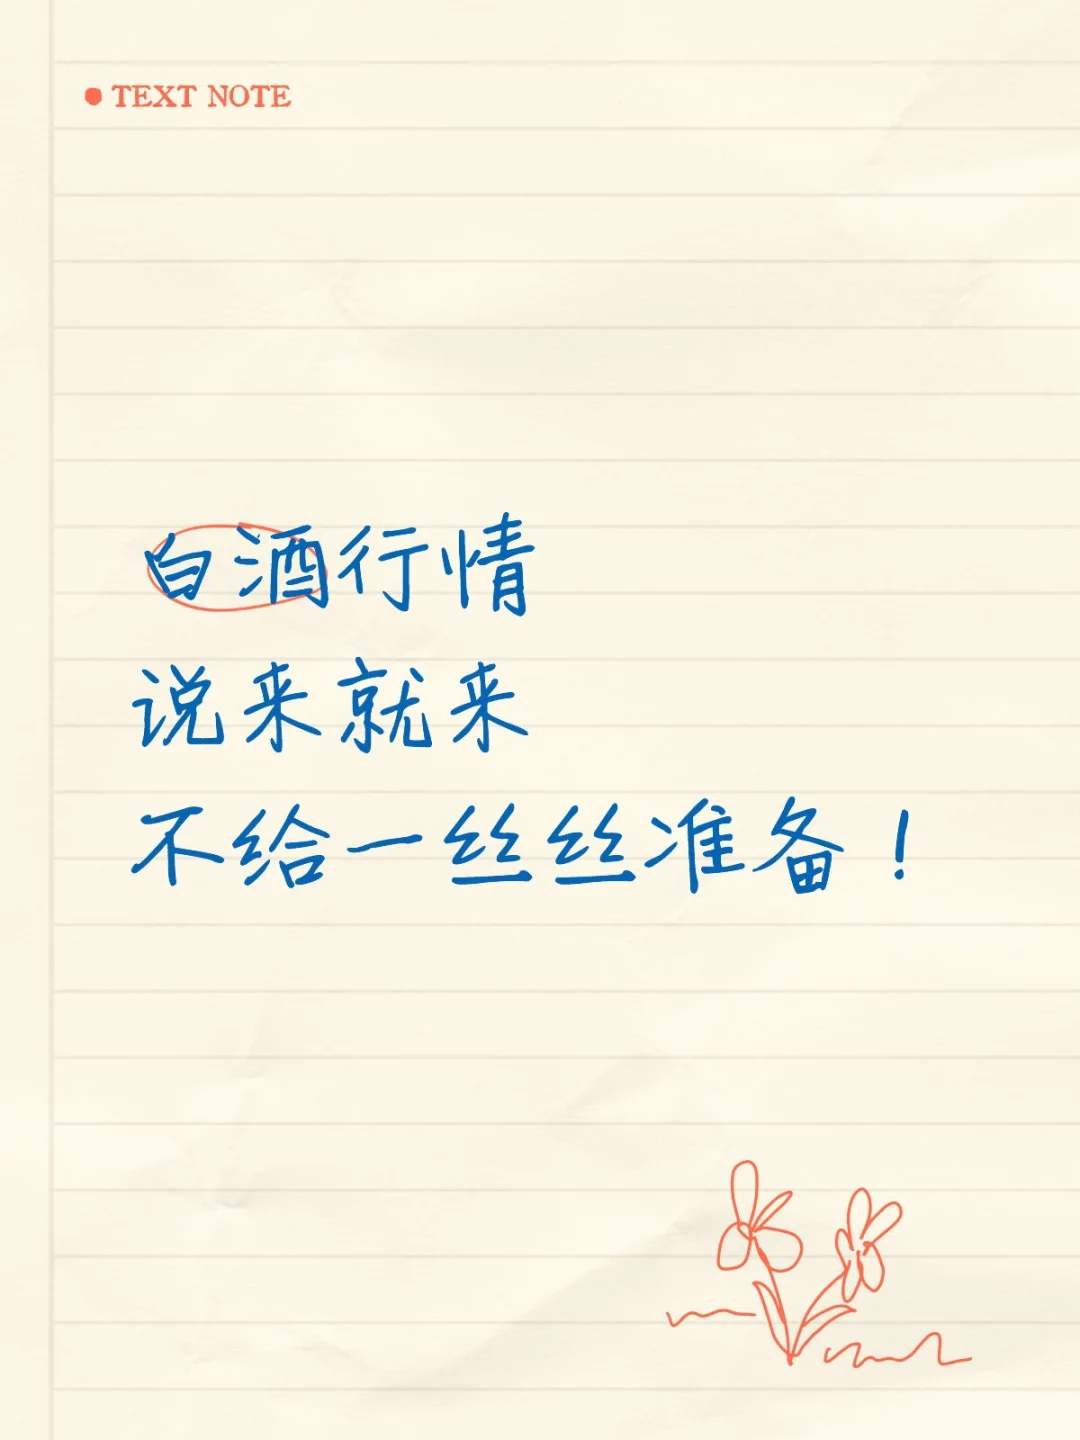 TEXT NOTE
白酒行情
说来就来
不给一丝丝准备！